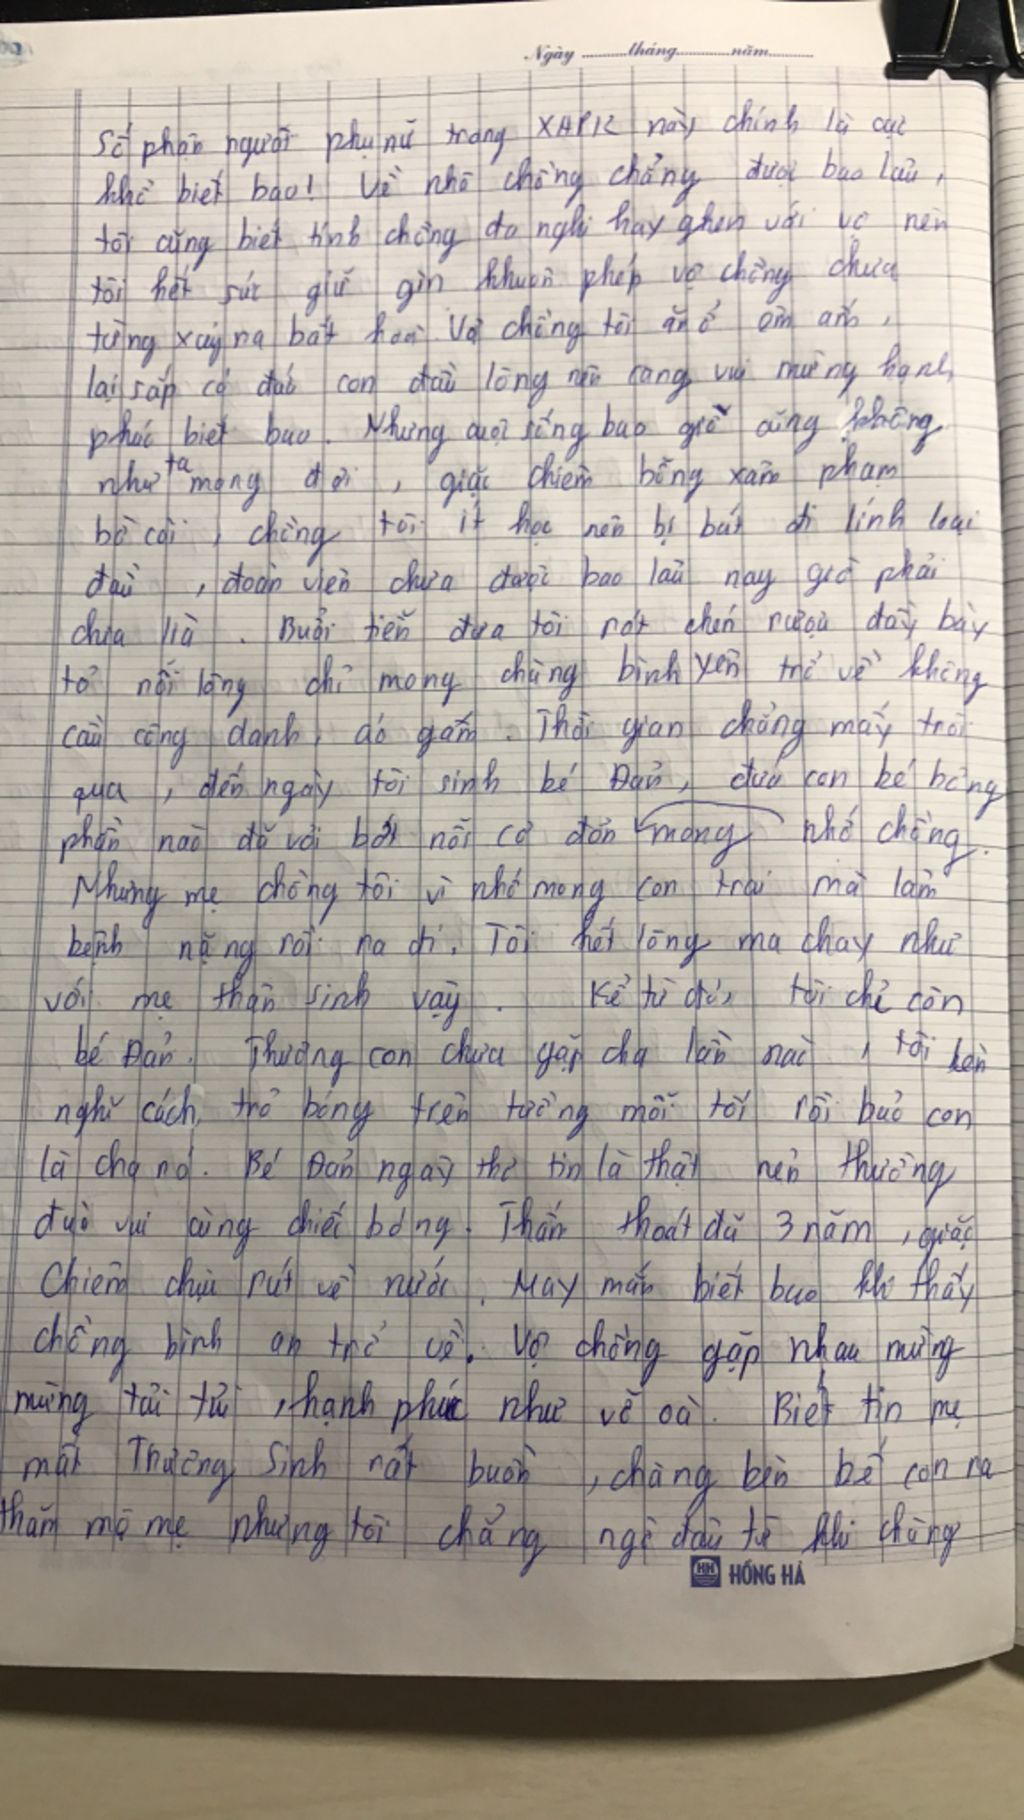 Ngày ......... tháng ......... năm .........
Số phận người phụ nữ trong XHPK này chính là cực
khổ biết bao! Về nhà chồng chẳng được bao lâu,
tôi cũng biết tính chồng đa nghi hay ghen với vợ nên
tôi hết sức giữ gìn khuôn phép vợ chồng chưa
từng xảy ra bất hoà. Vợ chồng tôi ăn ở êm ấm,
lại sắp có đứa con đầu lòng nên càng vui mừng hạnh
phúc biết bao. Nhưng cuộc sống bao giờ cũng không
như ta mong đợi, giặc chiêm bỗng xâm phạm
bờ cõi, chồng tôi ít học nên bị bắt đi lính loại
đầu, đoàn viên chưa được bao lâu nay giờ phải
chia lìa. Buổi tiễn đưa tôi rót chén rượu đầy bày
tỏ nỗi lòng chỉ mong chàng bình yên trở về không
cầu công danh, áo gấm. Thời gian chẳng mấy trôi
qua, đến ngày tôi sinh bé Đản, đứa con bé bỏng
phần nào đã vơi bớt nỗi cô đơn mong nhớ chồng.
Nhưng mẹ chồng tôi vì nhớ mong con trai mà lâm
bệnh nặng rồi ra đi. Tôi hết lòng ma chay như
với mẹ thân sinh vậy. Kể từ đó, tôi chỉ còn
bé Đản. Thương con chưa gặp cha lần nào, tôi bèn
nghĩ cách, trỏ bóng trên tường mỗi tối rồi bảo con
là cha nó. Bé Đản ngây thơ tin là thật nên thường
đùa vui cùng chiếc bóng. Thấm thoát đã 3 năm, giặc
Chiêm chịu rút về nước. May mắn biết bao khi thấy
chồng bình an trở về. Vợ chồng gặp nhau mừng
mừng tủi tủi, hạnh phúc như vỡ oà. Biết tin mẹ
mất Trương Sinh rất buồn, chàng bèn bế con ra
thăm mộ mẹ nhưng tôi chẳng ngờ đâu từ khi chàng
HH HỒNG HÀ